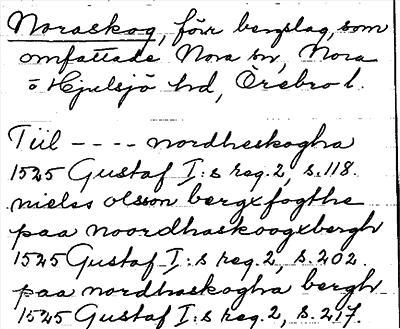 Noraskog, förr bergslag, som
omfattade Nora sn, Nora
o Hjulsjö hd, Örebro l.
Tiil ---- nordheskogha
1525 Gustaf I:s reg. 2, s. 118.
niels olsson bergxfogthe
paa noordhaskoogxbergh
1525 Gustaf I:s reg. 2, s. 202.
paa nordhaskogha bergh
1525 Gustaf I:s reg. 2, s. 217.